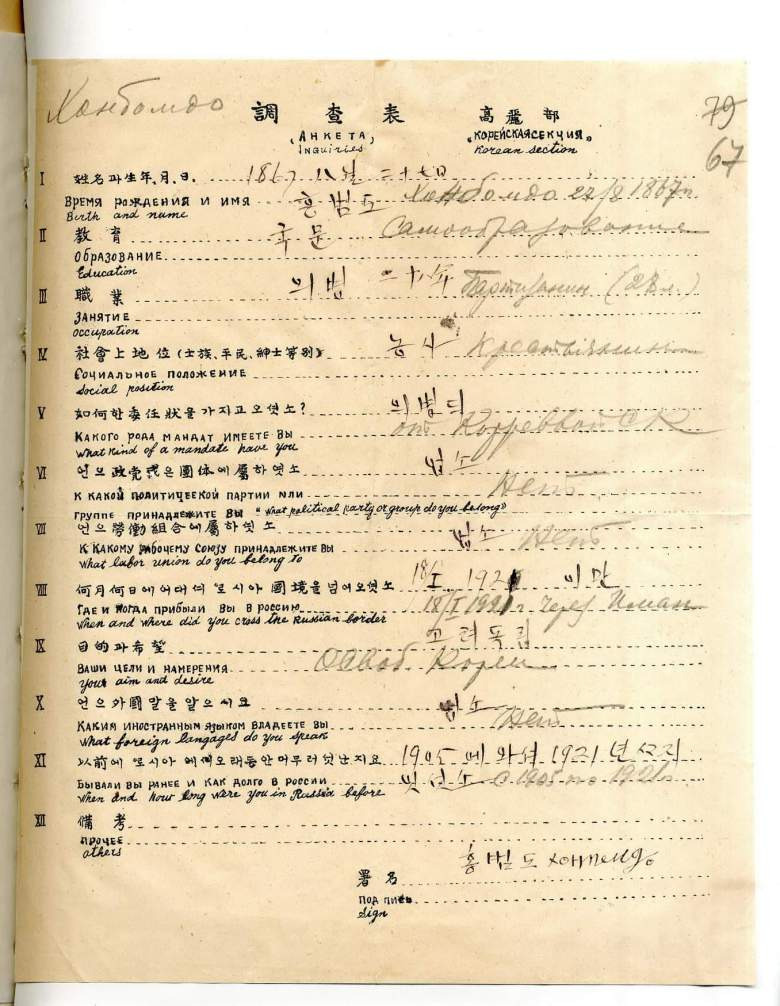 Хонбомдо
調 查 表 高 麗 部
79
(АНКЕТА) "КОРЕЙСКАЯ СЕКЦИЯ"
67
Inquiries Korean section
I 姓名과 生年.月.日. 1867 八월 二十七日
ВРЕМЯ РОЖДЕНИЯ И ИМЯ 홍범도 Хонбомдо 27/8 1867
Birth and name
II 教 育 국문 Самообразование
ОБРАЗОВАНИЕ
Education
III 職 業 의병 二十 Партизанин
ЗАНЯТИЕ
occupation
IV 社會上地位(士族、平民、紳士等別) 농사 Крестьянин
СОЦИАЛЬНОЕ ПОЛОЖЕНИЕ
Social position
V 如何한 委任狀을 가지고 오셧소? 의병대
КАКОГО РОДА МАНДАТ ИМЕЕТЕ ВЫ от
What kind of a mandate have you
VI 언으 政党 은 團体에 屬하엿소 업소
К КАКОЙ ПОЛИТИЧЕСКОЙ ПАРТИИ ИЛИ Нет
ГРУППЕ ПРИНАДЛЕЖИТЕ ВЫ "What political party or group do you belong"
VII 언으 勞働組合에 屬하엿소 업소 Нет
К КАКОМУ РАБОЧЕМУ СОЮЗУ ПРИНАДЛЕЖИТЕ ВЫ
What labor union do you belong to
VIII 何月何日에 어대셔 로시아 國境을 넘어오셧소 18/I 1921 이만
ГДЕ И КОГДА ПРИБЫЛИ ВЫ В РОССИЮ 18/I 1921 г через Иман
When and where did you cross the Russian border
IX 目的과 希望 고려독립
ВАШИ ЦЕЛИ И НАМЕРЕНИЯ Освоб. Кореи
your aim and desire
X 언으 外國말을 알으시요 업소
КАКИЯ ИНОСТРАННЫМ ЯЗЫКОМ ВЛАДЕЕТЕ ВЫ Нет
What foreign langages do you speak
XI 以前에 로시아에 오래동안 머무러 잇난지요 1905에 와셔 1921년
БЫВАЛИ ВЫ РАНЕЕ И КАК ДОЛГО В РОССИИ с 1905 по 1921
When and how long were you in Russia before
XII 備 考
ПРОЧЕЕ
others
홍범도
署 名
ПОДПИСЬ
Sign